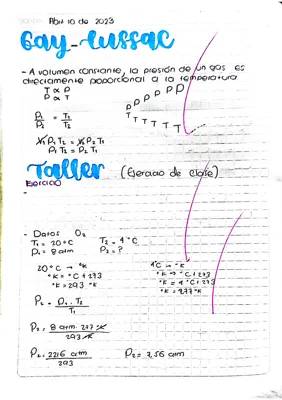 Abr 10 de 2023
Gay-Lussac
- A volumen constante, la presión de un gas es
directamente proporcional a la temperatura
T ∝ P
P ∝ T
P P P P P P P
T T T T T T
P₁/P₂ = T₁/T₂
P₁ T₂ = P₂ T₁
Taller (Ejercicio de clase)
Ejercicio
-
- Datos O₂
T₁ = 20°C T₂ = 4°C
P₁ = 8 atm P₂ = ?
20°C → °K 4°C → °K
°K = °C + 273 °K = °C + 273
°K = 293 °K °K = 4°C + 273
°K = 277 °K
P₂ = P₁ · T₂ / T₁
P₂ = 8 atm · 277 °K / 293 °K
P₂ = 2216 atm / 293 P₂ = 7,56 atm